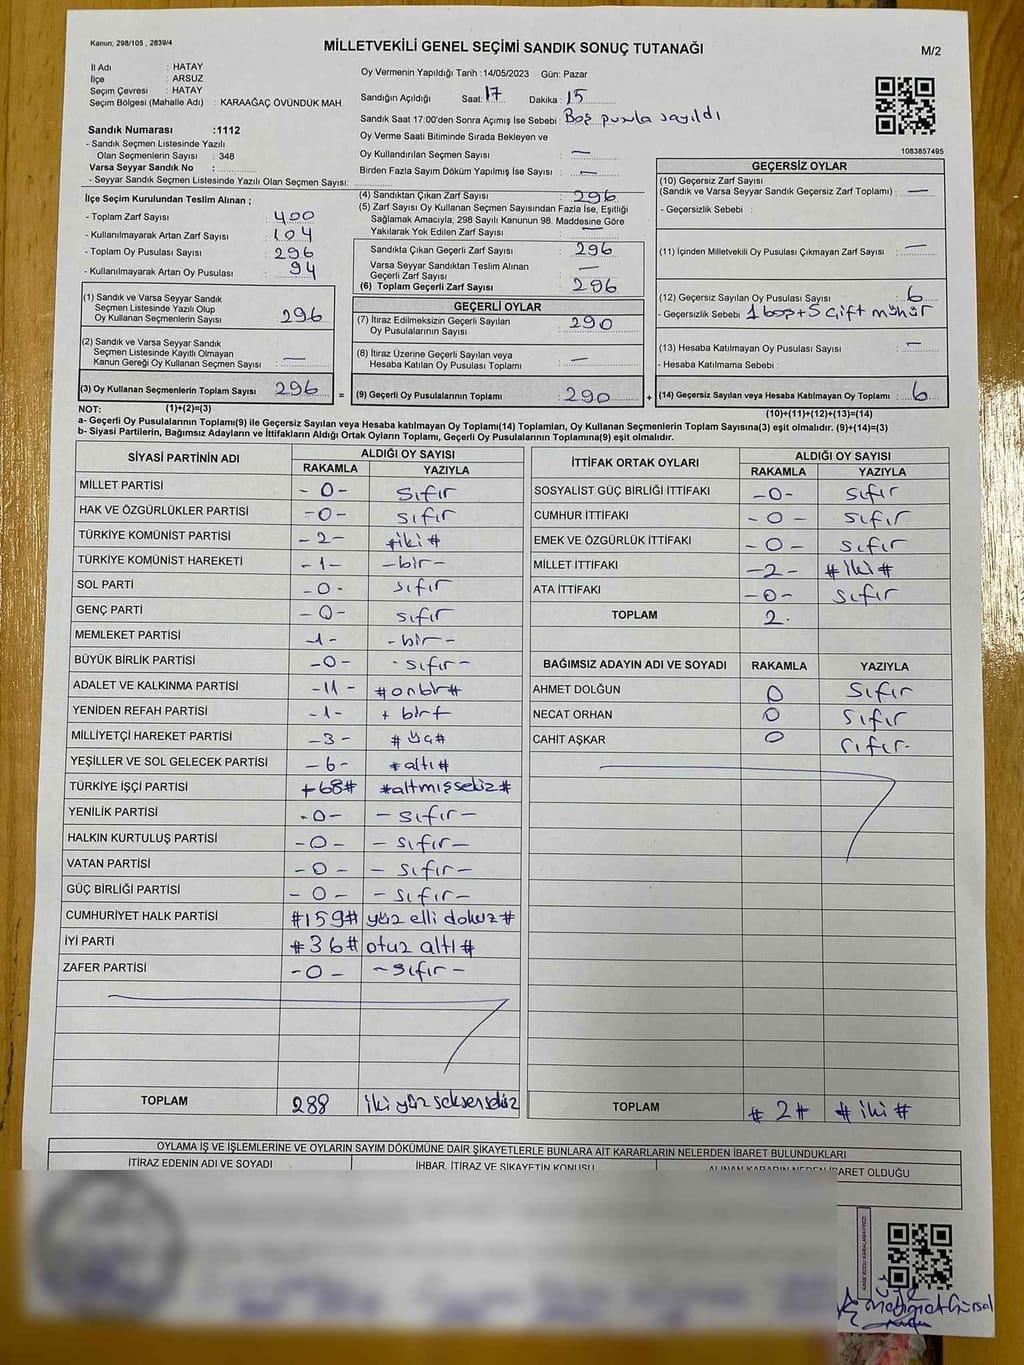 Kanun; 298/105 , 2839/4
MİLLETVEKİLİ GENEL SEÇİMİ SANDIK SONUÇ TUTANAĞI
M/2
İl Adı : HATAY
İlçe : ARSUZ
Seçim Çevresi : HATAY
Seçim Bölgesi (Mahalle Adı) : KARAAĞAÇ ÖVÜNDÜK MAH.
Sandık Numarası :1112
- Sandık Seçmen Listesinde Yazılı
Olan Seçmenlerin Sayısı : 348
Varsa Seyyar Sandık No :
- Seyyar Sandık Seçmen Listesinde Yazılı Olan Seçmen Sayısı:
İlçe Seçim Kurulundan Teslim Alınan ;
- Toplam Zarf Sayısı : 400
- Kullanılmayarak Artan Zarf Sayısı : 104
- Toplam Oy Pusulası Sayısı : 296
- Kullanılmayarak Artan Oy Pusulası : 94
(1) Sandık ve Varsa Seyyar Sandık
Seçmen Listesinde Yazılı Olup
Oy Kullanan Seçmenlerin Sayısı : 296
(2) Sandık ve Varsa Seyyar Sandık
Seçmen Listesinde Kayıtlı Olmayan
Kanun Gereği Oy Kullanan Seçmen Sayısı : —
(3) Oy Kullanan Seçmenlerin Toplam Sayısı : 296 =
Oy Vermenin Yapıldığı Tarih :14/05/2023 Gün: Pazar
Sandığın Açıldığı Saat: 17 Dakika : 15
Sandık Saat 17:00'den Sonra Açımış İse Sebebi : Boş pusula sayıldı
Oy Verme Saati Bitiminde Sırada Bekleyen ve
Oy Kullandırılan Seçmen Sayısı : —
Birden Fazla Sayım Döküm Yapılmış İse Sayısı : —
(4) Sandıktan Çıkan Zarf Sayısı : 296
(5) Zarf Sayısı Oy Kullanan Seçmen Sayısından Fazla İse, Eşitliği
Sağlamak Amacıyla, 298 Sayılı Kanunun 98. Maddesine Göre
Yakılarak Yok Edilen Zarf Sayısı : —
Sandıkta Çıkan Geçerli Zarf Sayısı : 296
Varsa Seyyar Sandıktan Teslim Alınan
Geçerli Zarf Sayısı : —
(6) Toplam Geçerli Zarf Sayısı : 296
GEÇERLİ OYLAR
(7) İtiraz Edilmeksizin Geçerli Sayılan
Oy Pusulalarının Sayısı : 290
(8) İtiraz Üzerine Geçerli Sayılan veya
Hesaba Katılan Oy Pusulası Toplamı : —
(9) Geçerli Oy Pusulalarının Toplamı : 290 +
1083857495
GEÇERSİZ OYLAR
(10) Geçersiz Zarf Sayısı
(Sandık ve Varsa Seyyar Sandık Geçersiz Zarf Toplamı) : —
- Geçersizlik Sebebi :
(11) İçinden Milletvekili Oy Pusulası Çıkmayan Zarf Sayısı : —
(12) Geçersiz Sayılan Oy Pusulası Sayısı : 6
- Geçersizlik Sebebi 1 boş+5 çift mühür
(13) Hesaba Katılmayan Oy Pusulası Sayısı : —
- Hesaba Katılmama Sebebi :
(14) Geçersiz Sayılan veya Hesaba Katılmayan Oy Toplamı : 6
NOT: (1)+(2)=(3)
(10)+(11)+(12)+(13)=(14)
a- Geçerli Oy Pusulalarının Toplamı(9) ile Geçersiz Sayılan veya Hesaba katılmayan Oy Toplamı(14) Toplamları, Oy Kullanan Seçmenlerin Toplam Sayısına(3) eşit olmalıdır. (9)+(14)=(3)
b- Siyasi Partilerin, Bağımsız Adayların ve İttifakların Aldığı Ortak Oyların Toplamı, Geçerli Oy Pusulalarının Toplamına(9) eşit olmalıdır.
SİYASİ PARTİNİN ADI
ALDIĞI OY SAYISI
RAKAMLA YAZIYLA
MİLLET PARTİSİ -0- sıfır
HAK VE ÖZGÜRLÜKLER PARTİSİ -0- sıfır
TÜRKİYE KOMÜNİST PARTİSİ -2- #iki#
TÜRKİYE KOMÜNİST HAREKETİ -1- -bir-
SOL PARTİ -0- sıfır
GENÇ PARTİ -0- sıfır
MEMLEKET PARTİSİ -1- -bir-
BÜYÜK BİRLİK PARTİSİ -0- -sıfır-
ADALET VE KALKINMA PARTİSİ -11- #onbir#
YENİDEN REFAH PARTİSİ -1- + bir+
MİLLİYETÇİ HAREKET PARTİSİ -3- # üç#
YEŞİLLER VE SOL GELECEK PARTİSİ -6- #altı#
TÜRKİYE İŞÇİ PARTİSİ #68# #altmışsekiz#
YENİLİK PARTİSİ -0- -sıfır-
HALKIN KURTULUŞ PARTİSİ -0- -sıfır-
VATAN PARTİSİ -0- -sıfır-
GÜÇ BİRLİĞİ PARTİSİ -0- -sıfır-
CUMHURİYET HALK PARTİSİ #159# yüz elli dokuz#
İYİ PARTİ #36# otuz altı#
ZAFER PARTİSİ -0- -sıfır-
TOPLAM 288 iki yüz seksensekiz
İTTİFAK ORTAK OYLARI
ALDIĞI OY SAYISI
RAKAMLA YAZIYLA
SOSYALİST GÜÇ BİRLİĞİ İTTİFAKI -0- sıfır
CUMHUR İTTİFAKI -0- sıfır
EMEK VE ÖZGÜRLÜK İTTİFAKI -0- sıfır
MİLLET İTTİFAKI -2- #iki#
ATA İTTİFAKI -0- sıfır
TOPLAM 2.
BAĞIMSIZ ADAYIN ADI VE SOYADI RAKAMLA YAZIYLA
AHMET DOLĞUN 0 sıfır
NECAT ORHAN 0 sıfır
CAHİT AŞKAR 0 sıfır
TOPLAM # 2# #iki#
OYLAMA İŞ VE İŞLEMLERİNE VE OYLARIN SAYIM DÖKÜMÜNE DAİR ŞİKAYETLERLE BUNLARA AİT KARARLARIN NELERDEN İBARET BULUNDUKLARI
İTİRAZ EDENİN ADI VE SOYADI
İHBAR, İTİRAZ VE ŞİKAYETİN KONUSU
ALINAN KARARIN NEDEN İBARET OLDUĞU